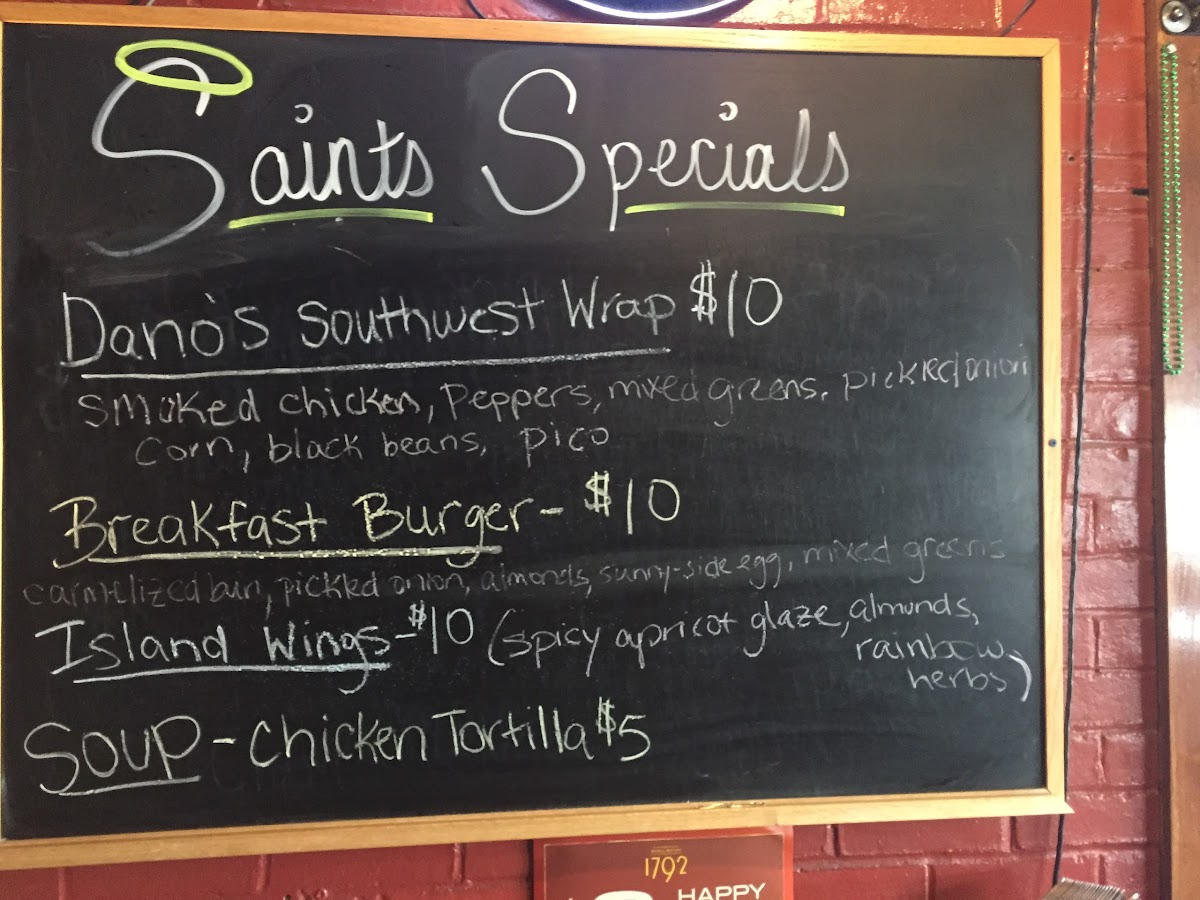 Saints Specials
Dano's Southwest Wrap $10
smoked chicken, Peppers, mixed greens, pickled onion
corn, black beans, pico
Breakfast Burger - $10
carmelized bun, pickled onion, almonds, sunny-side egg, mixed greens
Island Wings - $10 (spicy apricot glaze, almonds,
rainbow
herbs)
Soup - Chicken Tortilla $5
1792
HAPPY